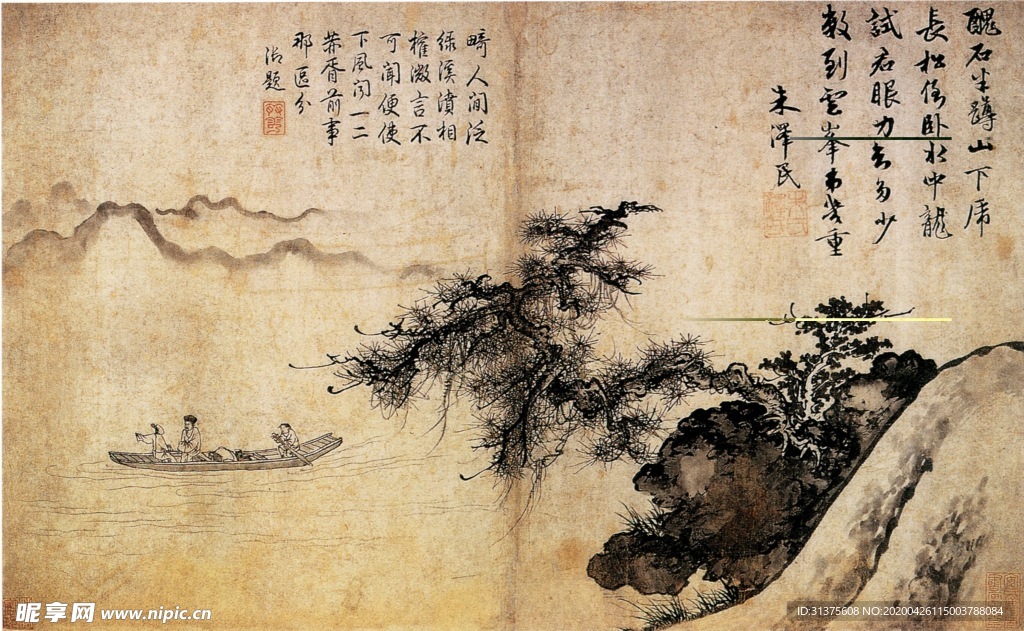 醜石半蹲山下虎
長松倒卧水中龍
試君眼力知多少
數到雲峯第幾重
朱澤民
畸人閒泛
綠溪濆相
榷微言不
可聞便使
下風聞一二
華胥前事
那區分
御題
昵享网 www.nipic.cn
ID:31375608 NO:20200426115003788084